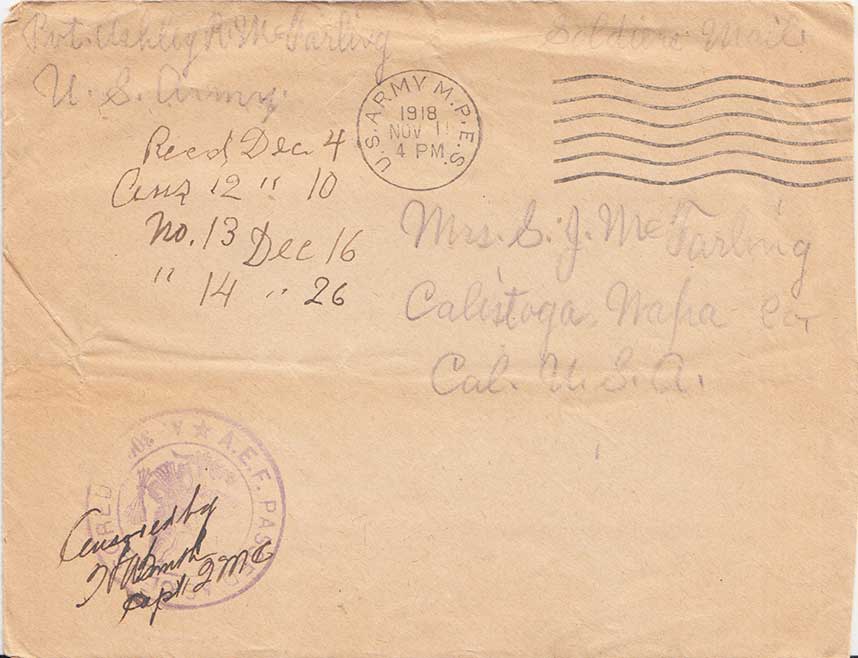 Pvt. Ashley R. McFarling
U. S. Army.
Soldiers Mail.
U.S. ARMY M.P.E.S.
1918
NOV 11
4 PM
Recd Dec 4
Ans 12 " 10
No. 13 Dec 16
" 14 " 26
Mrs. S. J. McFarling
Calistoga Napa Co.
Cal. U. S. A.
A.E.F. PASSED
Censored by
Smith
Capt. QMC